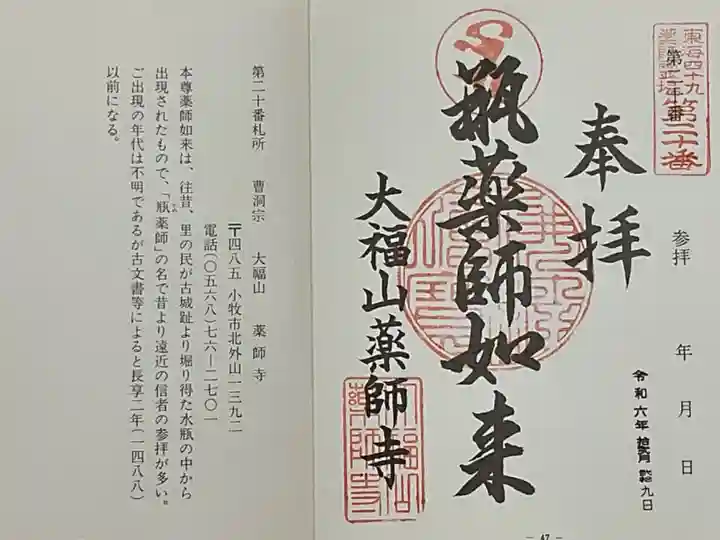 東海四十九
第二十番
第二十番
奉拝
参拝　年　月　日
令和六年
九日
瓶薬師如来
大福山薬師寺
— 47 —
第二十番札所　曹洞宗　大福山　薬師寺
〒四八五　小牧市北外山一三九二
電話(〇五六八)七六—二七〇一
本尊薬師如来は、往昔、里の民が古城趾より堀り得た水瓶の中から
出現されたもので、「瓶薬師」の名で昔より遠近の信者の参拝が多い。
ご出現の年代は不明であるが古文書等によると長享二年(一四八八)
以前になる。